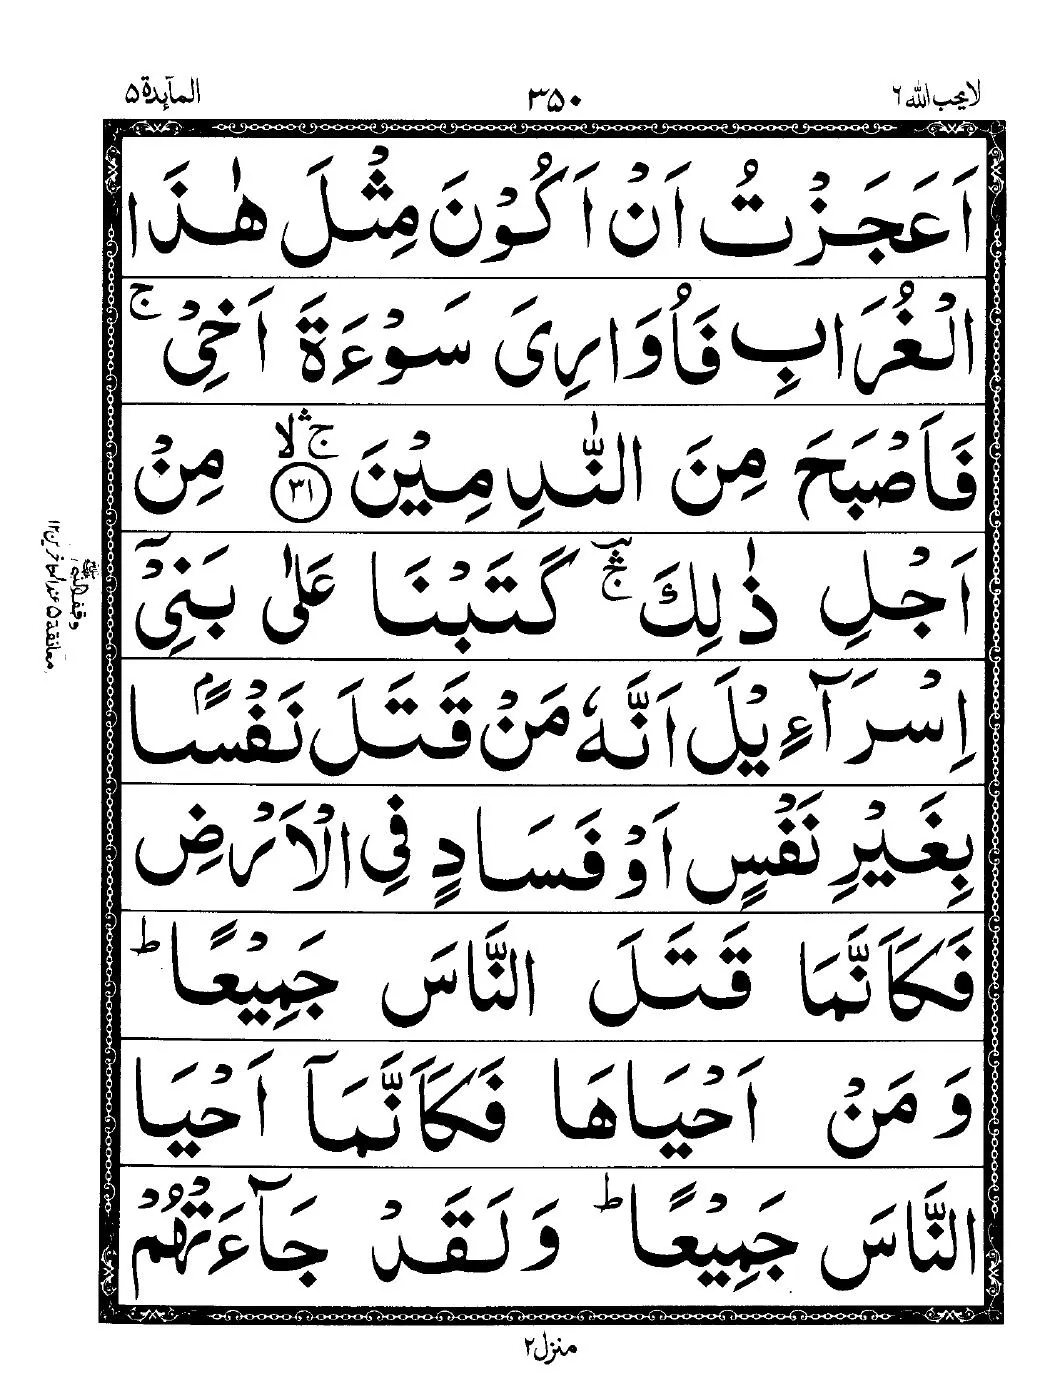 لا یحب اللہ ۶
۳۵۰
المآىِٕدة ۵
اَعَجَزْتُ اَنْ اَكُوْنَ مِثْلَ هٰذَا
الْغُرَابِ فَاُوَارِیَ سَوْءَةَ اَخِیْ ۚ
فَاَصْبَحَ مِنَ النّٰدِمِیْنَ ﴿۳۱﴾ ج ۛ لا مِنْ
اَجْلِ ذٰلِكَ ؔ ۛ ج كَتَبْنَا عَلٰی بَنِیْۤ
اِسْرَآءِیْلَ اَنَّهٗ مَنْ قَتَلَ نَفْسًۢا
بِغَیْرِ نَفْسٍ اَوْ فَسَادٍ فِی الْاَرْضِ
فَكَاَنَّمَا قَتَلَ النَّاسَ جَمِیْعًا ؕ
وَ مَنْ اَحْیَاهَا فَكَاَنَّمَاۤ اَحْیَا
النَّاسَ جَمِیْعًا ؕ وَ لَقَدْ جَآءَتْهُمْ
وقف النبی ﷺ
معانقة ۵ عند المتاخرین ۱۲
منزل ۲